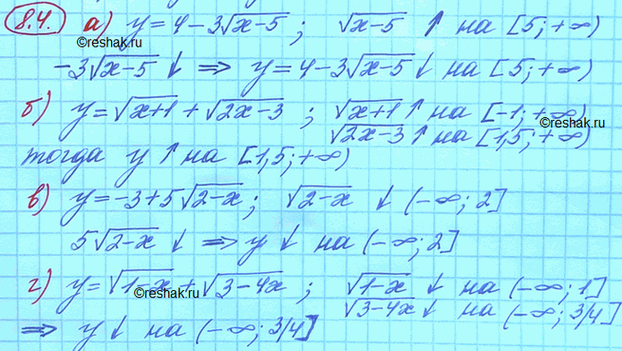 8.4. а) y = 4 - 3√(x-5) ; √(x-5) ↑ на [5; +∞)
©reshak.ru
-3√(x-5) ↓ ⇒ y = 4 - 3√(x-5) ↓ на [5; +∞)
б) y = √(x+1) + √(2x-3) ; √(x+1) ↑ на [-1; +∞)
©reshak.ru
√(2x-3) ↑ на [1,5; +∞)
тогда y ↑ на [1,5; +∞)
в) y = -3 + 5√(2-x) ; √(2-x) ↓ (-∞; 2]
5√(2-x) ↓ ⇒ y ↓ на (-∞; 2]
г) y = √(1-x) + √(3-4x) ; √(1-x) ↓ на (-∞; 1]
©reshak.ru
√(3-4x) ↓ на (-∞; 3/4]
⇒ y ↓ на (-∞; 3/4]